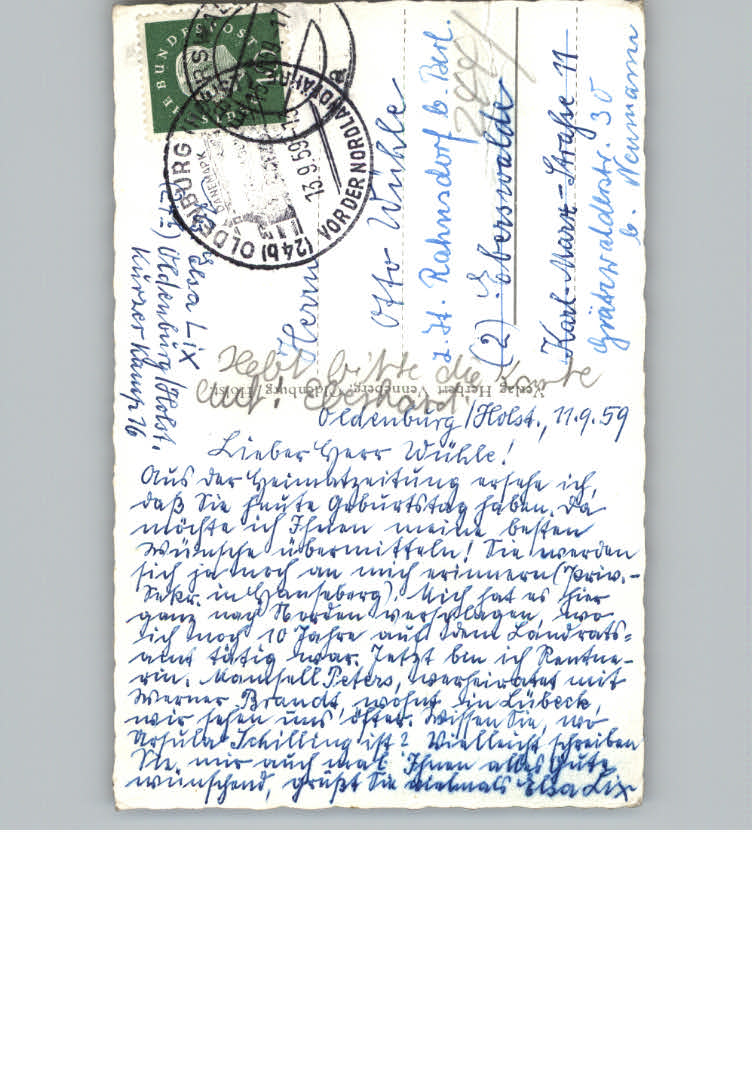 DEUTSCHE BUNDESPOST
10
(24b) OLDENBURG
VOR DER NORDLANDFAHRT
13.9.59
DÄNEMARK
Elsa Lix
(24b) Oldenburg/Holst.
Kurzer Kamp 16
Herrn
Otto Wühle
z. Zt. Rahnsdorf b. Berl.
(2) Eberswalde
Karl-Marx-Straße 11
Grätzwalderstr. 30
b. Neumann
Hebt bitte die Karte
auf! Eberhard.
Verlag Herbert Venneberg, Oldenburg/Holst.
Oldenburg/Holst., 11.9.59
Lieber Herr Wühle!
Aus der Heimatzeitung ersehe ich,
daß Sie heute Geburtstag haben. Da
möchte ich Ihnen meine besten
Wünsche übermitteln! Sie werden
sich ja noch an mich erinnern (Priv.-
Sekr. in Hanseberg). Mich hat es hier
ganz nach Norden verschlagen, wo
ich noch 10 Jahre auf dem Landrats-
amt tätig war. Jetzt bin ich Rentne-
rin. Mamsell Peters, verheiratet mit
Werner Brandt, wohnt in Lübeck,
wir sehen uns öfter. Wissen Sie, wo
Ursula Schilling ist? Vielleicht schreiben
Sie mir auch mal. Ihnen alles Gute
wünschend, grüßt Sie vielmals Elsa Lix